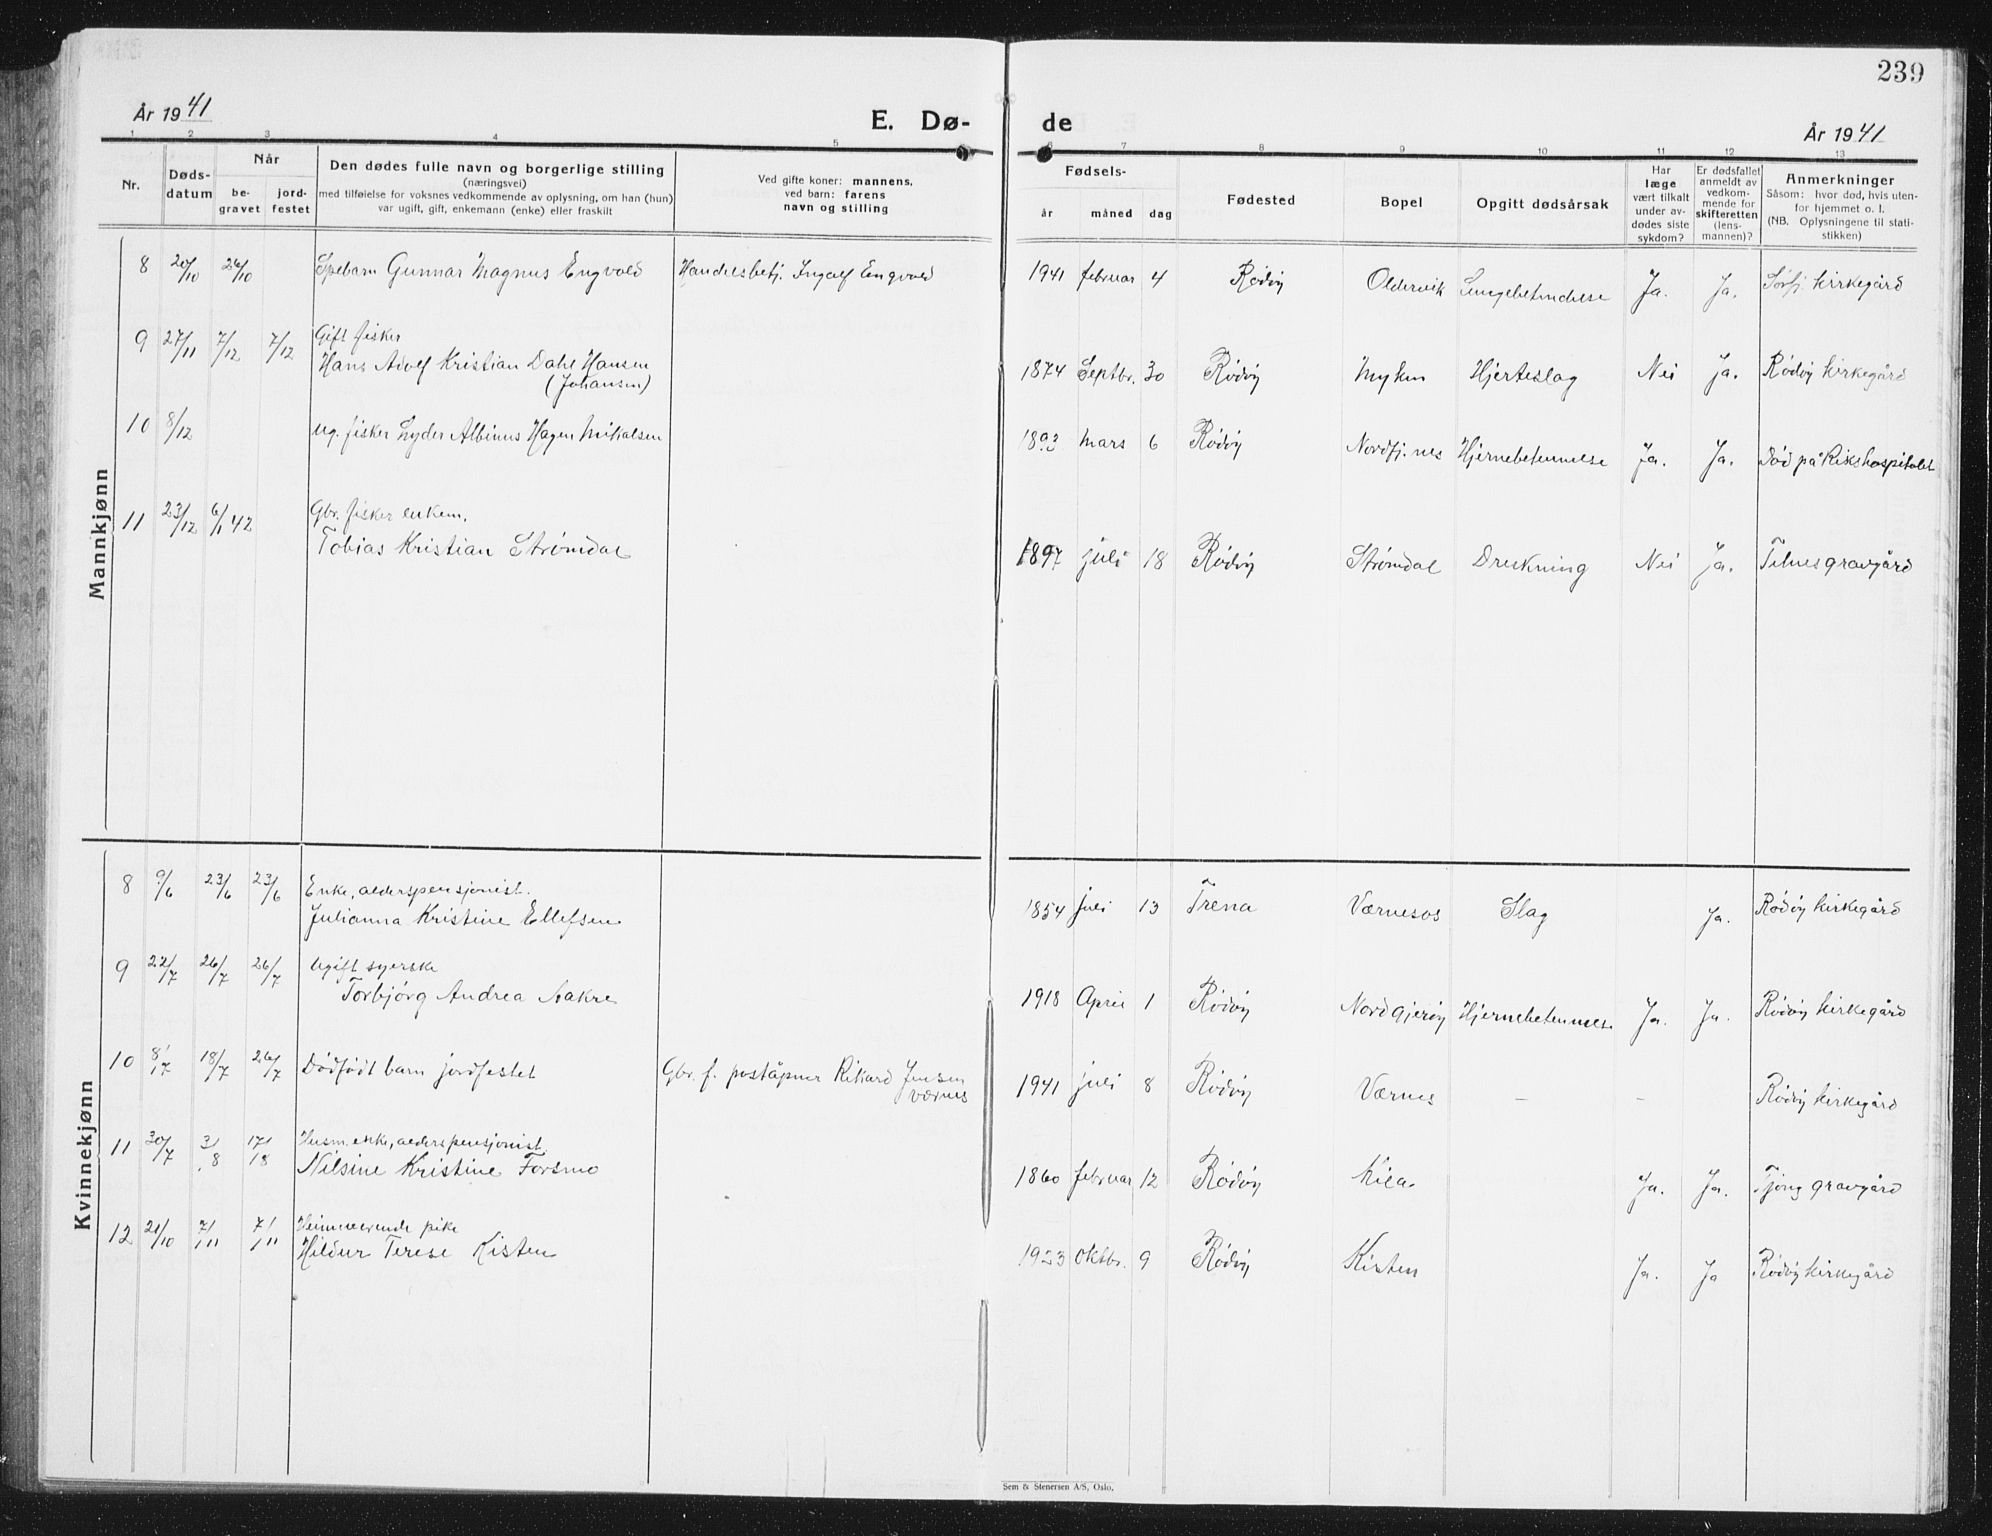 239
År 1941
E. Dø-
de
År 1941
1 2 3 4 5 6 7 8 9 10 11 12 13
Nr.
Døds-
datum
Når
be-
gravet
jord-
festet
Den dødes fulle navn og borgerlige stilling
(næringsvei)
med tilføielse for voksnes vedkommende av oplysning, om han (hun)
var ugift, gift, enkemann (enke) eller fraskilt
Ved gifte koner: mannens,
ved barn: farens
navn og stilling
Fødsels-
år måned dag
Fødested
Bopel
Opgitt dødsårsak
Har
læge
vært tilkalt
under av-
dødes siste
sykdom?
Er dødsfallet
anmeldt av
vedkom-
mende for
skifteretten
(lens-
mannen)?
Anmerkninger
Såsom: hvor død, hvis uten-
for hjemmet o. l.
(NB. Oplysningene til stati-
stikken)
Mannkjønn
8 20/10 26/10 Spebarn Gunnar Magnus Engvold Handelsbetj. Ingolf Engvold 1941 februar 4 Rødøy Oldervik Lungebetendelse Ja. Ja. Sørfj. kirkegård
9 27/11 7/12 7/12 Gift fisker
Hans Adolf Kristian Dahl Hansen
(Johansen) 1874 Septbr. 30 Rødøy Myken Hjerteslag Nei Ja. Rødøy kirkegård
10 8/12 ug. fisker Lyder Albinus Hagen Mikalsen mars 6 Rødøy Nordfj.nes Hjernebetennelse Ja. Ja. Död på Rikshospitalet
11 23/12 6/1 42 Gbr. fisker enkem.
Tobias Kristian Strømdal 1897 juli 18 Rødøy Strømdal Drukning Nei Ja. Telnes gravgård
Kvinnekjønn
8 9/6 23/6 23/6 Enke, alderspensjonist.
Julianna Kristine Ellefsen 1854 juli 13 Træna Værnesos Slag Ja. Rødøy kirkegård
9 22/7 26/7 26/7 Ugift syerske
Torbjörg Andrea Aakre 1918 April 1 Rødøy Nordgjerøy Hjernebetennelse Ja. Ja. Rødøy kirkegård
10 8/7 18/7 26/7 Dödfödt barn jordfestet Gbr. f. poståpner Rikard Jensen
Værnes 1941 juli 8 Rødøy Værnes - - Rødøy kirkegård
11 30/7 3/8 17/8 Husm.enke, alderspensjonist.
Nilsine Kristine Forsmo 1860 februar 12 Rødøy Kila. Ja. Ja. Tjöng gravgård
12 21/10 7/11 7/11 Heimeverende pike
Hildur Terese Kisten 1923 Oktbr. 9 Rødøy Kisten Ja. Ja Rødøy kirkegård
Sem & Stenersen A/S, Oslo.